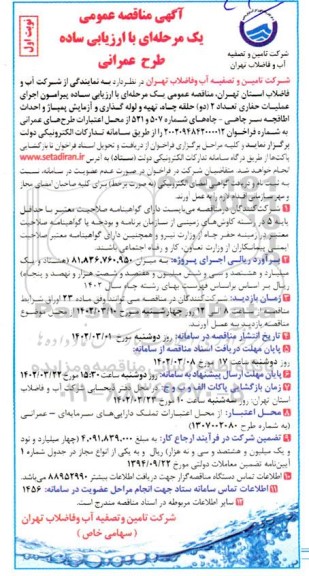 آگهی مناقصه عمومی
یک مرحله‌ای با ارزیابی ساده
طرح عمرانی
نوبت اول
شرکت تامین و تصفیه
آب و فاضلاب تهران
شرکت تامین و تصفیه آب وفاضلاب تهران در نظر دارد به نمایندگی از شرکت آب و
فاضلاب استان تهران، مناقصه عمومی یک مرحله‌ای با ارزیابی ساده پیرامون اجرای
عملیات حفاری تعداد ۲ (دو) حلقه چاه، تهیه و لوله گذاری و آزمایش پمپاژ و احداث
اطاقچه سر چاهی - چاه‌های شماره ۵۰۷ و ۵۳۱ از محل اعتبارات طرح‌های عمرانی
به شماره فراخوان ۲۰۰۳۰۹۴۸۴۲۰۰۰۰۱۲ را از طریق سامانه تدارکات الکترونیکی دولت
برگزار نماید و کلیه مراحل برگزاری فراخوان از دریافت و تحویل اسناد فراخوان تا بازگشایی
پاکت‌ها از طریق درگاه سامانه تدارکات الکترونیکی دولت (ستاد) به آدرس www.setadiran.ir
انجام خواهد شد. متقاضیان شرکت در فراخوان در صورت عدم عضویت در سامانه، نسبت
به ثبت نام و دریافت گواهی امضای الکترونیکی (به صورت برخط) برای کلیه صاحبان امضای مجاز
و مهر سازمانی اقدام لازم به عمل آورند.
۱ شرکت کنندگان در مناقصه می‌بایست دارای گواهینامه صلاحیت معتبر با حداقل
پایه ۵ در رشته کاوش‌های زمینی از سازمان برنامه و بودجه یا گواهینامه صلاحیت
معتبر در زمینه حفر چاه از وزارت نیرو و همچنین دارای گواهینامه معتبر صلاحیت
ایمنی پیمانکاران از وزارت تعاون، کار و رفاه اجتماعی باشند.
۲ برآورد ریالی اجرای پروژه: به میزان ۸۱,۸۳۶,۷۶۰,۹۵۰ (هشتاد و یک
میلیارد و هشتصد و سی و شش میلیون و هفتصد و شصت هزار و نهصد و پنجاه)
ریال بر اساس فهرست بهای رشته چاه سال ۱۴۰۲
۳ زمان بازدید: شرکت کنندگان در مناقصه می توانند وفق ماده ۲۳ اوراق شرایط
مناقصه از ساعت ۸ الی ۱۲ روز چهارشنبه مورخ ۱۴۰۲/۰۳/۱۰ از محل موضوع
مناقصه بازدید به عمل آورند.
۴ تاریخ انتشار مناقصه در سامانه: روز دوشنبه مورخ ۱۴۰۲/۰۳/۰۱
۵ پایان مهلت دریافت اسناد مناقصه از سامانه:
روز دوشنبه ساعت ۱۷ مورخ ۱۴۰۲/۰۳/۰۸
۶ پایان مهلت ارسال پیشنهاد به سامانه: روز دوشنبه ساعت ۱۵:۳۰ مورخ ۱۴۰۲/۰۳/۲۲
۷ زمان بازگشایی پاکات الف و ب و ج: در محل دفتر شرکت آب و فاضلاب
استان تهران، روز سه‌شنبه ساعت ۱۰ مورخ ۱۴۰۲/۰۳/۲۳
۸ محل اعتبار: از محل اعتبارات تملک دارایی‌های سرمایه‌ای - عمرانی
(به شماره طرح ۱۳۰۷۰۰۲۰۸۰)
۹ تضمین شرکت در فرآیند ارجاع کار: به مبلغ ۴,۰۹۱,۸۳۹,۰۰۰ (چهار میلیارد و نود
و یک میلیون و هشتصد و سی و نه هزار) ریال و به یکی از انواع مجاز در جدول شماره ۱
آیین‌نامه تضمین معاملات دولتی مورخ ۱۳۹۴/۰۹/۲۲
۱۰ اطلاعات تماس دستگاه مناقصه‌گزار جهت دریافت اطلاعات بیشتر ۸۸۹۵۲۹۹۰ می‌باشد.
۱۱ اطلاعات تماس سامانه ستاد جهت انجام مراحل عضویت در سامانه: ۱۴۵۶
۱۲ سایر اطلاعات مربوطه در اسناد مناقصه مندرج است.
شرکت تامین و تصفیه آب وفاضلاب تهران
(سهامی خاص)